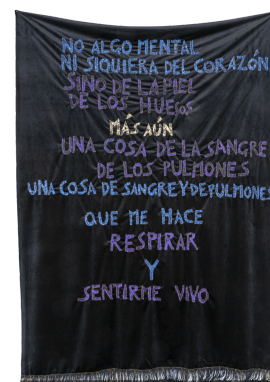 NO ALGO MENTAL
NI SIQUIERA DEL CORAZÓN
SINO DE LA PIEL
DE LOS HUESOS
MÁS AÚN
UNA COSA DE LA SANGRE
DE LOS PULMONES
UNA COSA DE SANGRE Y DE PULMONES
QUE ME HACE
RESPIRAR
Y
SENTIRME VIVO